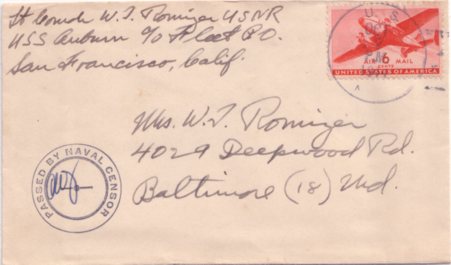 Lt Comdr W. T. Rominger USNR
USS Auburn c/o Fleet P.O.
San Francisco, Calif.
U. S.
AIR 6 MAIL
CENTS
UNITED STATES OF AMERICA
Mrs. W. T. Rominger
4029 Deepwood Rd.
Baltimore (18) Md.
PASSED BY NAVAL CENSOR